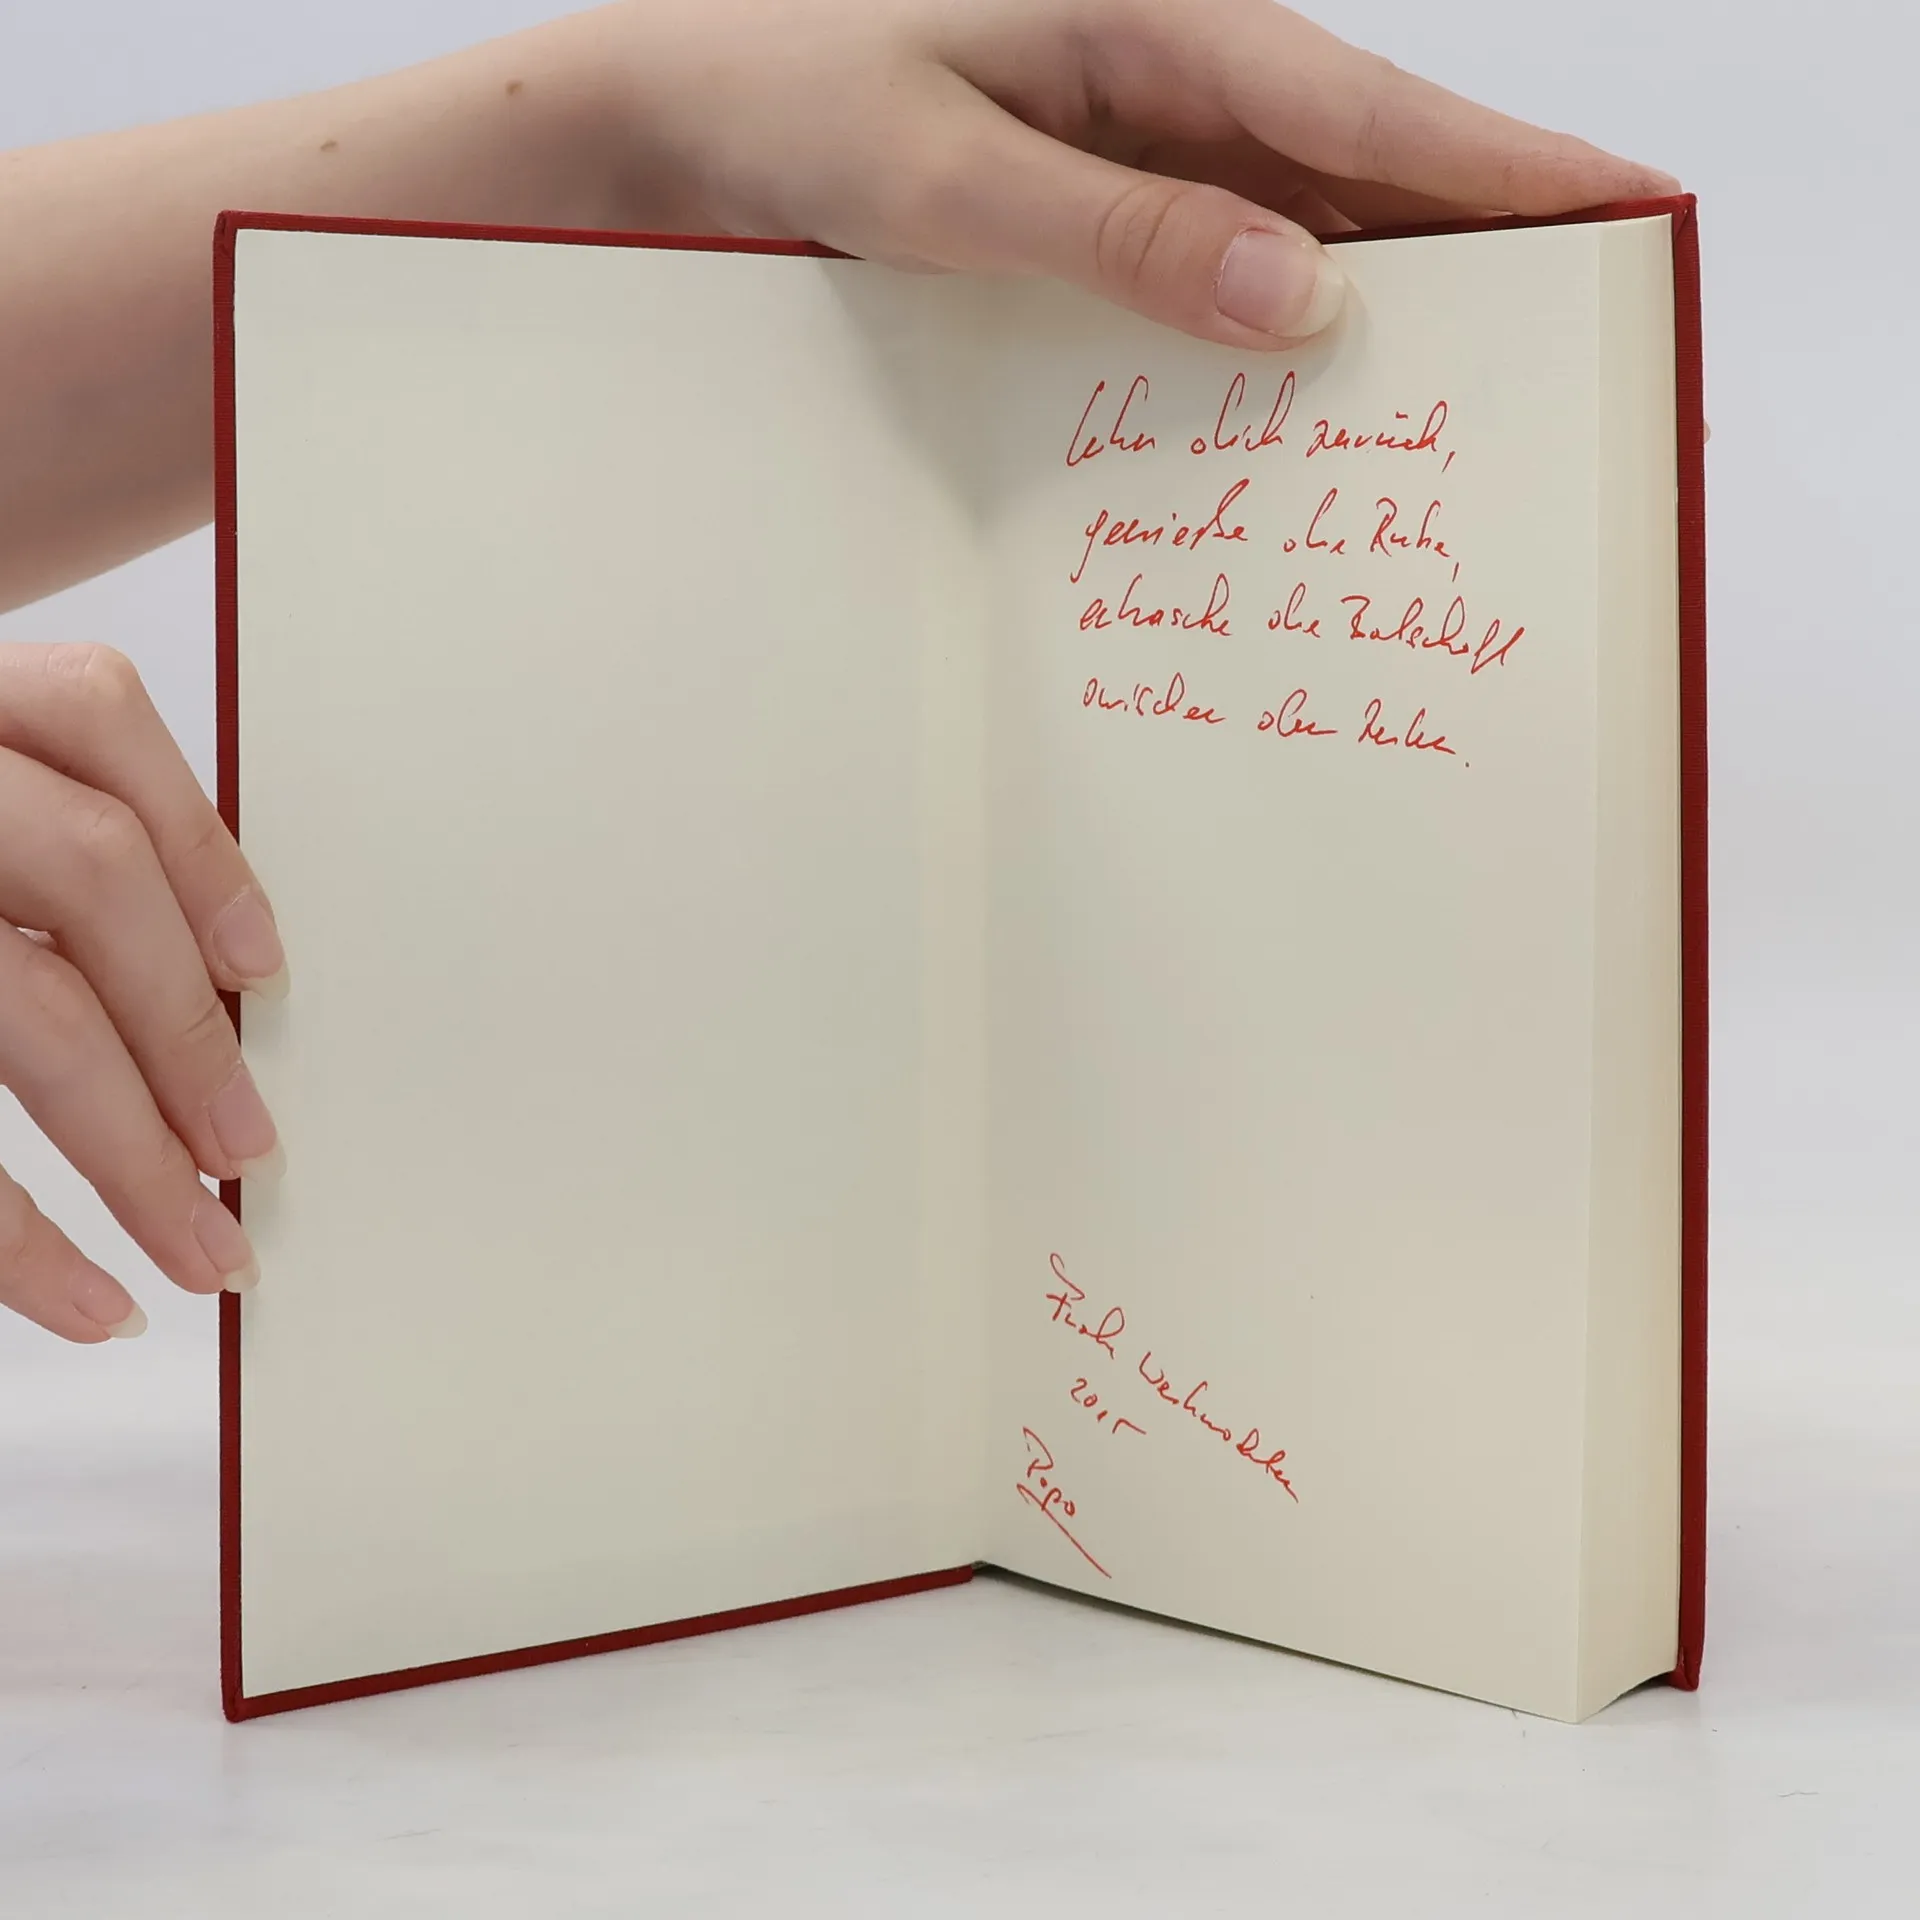 Lehn dich zurück,
genieße die Ruhe,
erhasche die Botschaft
zwischen den Zeilen.
Frohe Weihnachten
2015
Papa